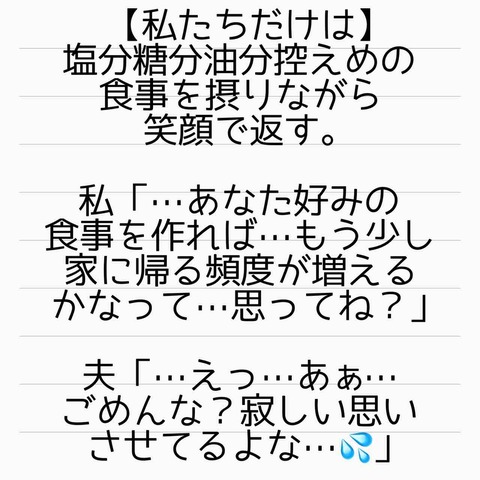 【私たちだけは】
塩分糖分油分控えめの
食事を摂りながら
笑顔で返す。
私「…あなた好みの
食事を作れば…もう少し
家に帰る頻度が増える
かなって…思ってね？」
夫「…えっ…あぁ…
ごめんな？寂しい思い
させてるよな…💦」